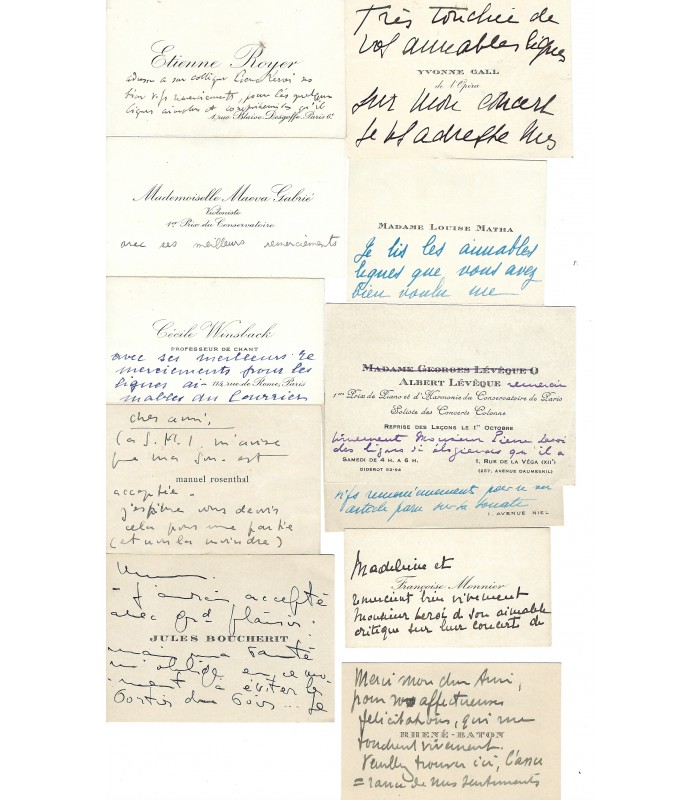 Etienne Royer
adresse a son collègue Pierre Leroi ses
bien vifs remerciements, pour les quelques
lignes aimables et compréhensives qu'il
4, rue Blaise-Desgoffe, Paris 6ᵉ
Mademoiselle Maeva Gabrié
Violoniste
1ᵉʳ Prix du Conservatoire
avec ses meilleurs remerciements
Cécile Winsback
PROFESSEUR DE CHANT
avec ses meilleurs re
merciements pour les
lignes ai- 114, rue de Rome, Paris
mables du Courrier
cher ami,
la S.M.I. m'avise
que ma Son. est
manuel rosenthal
acceptée.
J'espère vous devoir
cela pour une partie
(et non la moindre)
J'aurais accepté
avec grd plaisir.
JULES BOUCHERIT
mais ma santé
m'oblige en ce mo-
ment à éviter les
sorties du soir... Je
Très touchée de
vos aimables lignes
YVONNE GALL
de l'Opéra
sur mon concert
je vs adresse mes
MADAME LOUISE MATHA
Je lis les aimables
lignes que vous avez
bien voulu me
MADAME GEORGES LÉVÊQUE
ALBERT LÉVÊQUE remercie
1ᵉʳˢ Prix de Piano et d'Harmonie du Conservatoire de Paris
Soliste des Concerts Colonne
REPRISE DES LEÇONS LE 1ᵉʳ OCTOBRE
vivement Monsieur Pierre Leroi
des lignes si élogieuses qu'il a
SAMEDI DE 4 H. A 6 H. 1, RUE DE LA VÉGA (XIIᵉ)
DIDEROT 52-64 (257, AVENUE DAUMESNIL)
vifs remerciements pour
article paru sur sa Sonate
1, AVENUE NIEL
Madeleine et
Françoise Monnier
remercient très vivement
Monsieur Leroi de son aimable
critique sur leur concerts de
Merci mon cher Ami,
pour vos affectueuses
félicitations, qui me
RHENÉ-BATON
touchent vivement.
Veuillez trouver ici, l'assu
=rance de mes sentiments